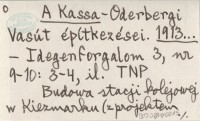 A Kassa-Oderbergi
Vasút építkezései. 1913...
- Idegenforgalom 3, nr
9-10: 3-4, il. TNP
Budowa stacji kolejowej
w Kiezmarku (z projektem